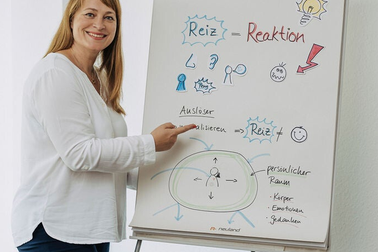 Reiz = Reaktion
Auslöser
alisieren => Reiz ≠
persönlicher
Raum
· Körper
· Emotionen
· Gedanken
neuland